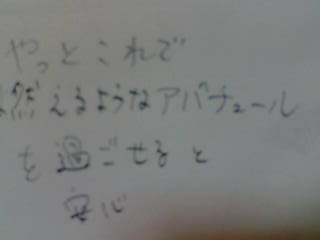 やっとこれで
燃えるようなアバチュール
を過ごせると
安心